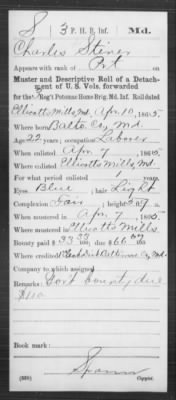 S 3 P. H. B. Inf. Md.
Charles Stiner
Appears with rank of Pvt on
Muster and Descriptive Roll of a Detach-
ment of U. S. Vols. forwarded
for the 3 Reg't Potomac Home Brig. Md. Inf. Roll dated
Ellicotts Mills, Md. Apr. 10, 1865.
Where born Balto. Co., Md.
Age 22 years; occupation Laborer
When enlisted Apr. 7, 1865.
Where enlisted Ellicotts Mills, Md.
For what period enlisted 1 years.
Eyes Blue; hair Light
Complexion Fair; height 5 ft. 9 in.
When mustered in Apr. 7, 1865.
Where mustered in Ellicotts Mills
Bounty paid $ 33 33/100; due $ 66 67/100
Where credited Baltimore Co., Md.
Company to which assigned
Remarks: Govt bounty due
$100
Book mark:
(339) Copyist.